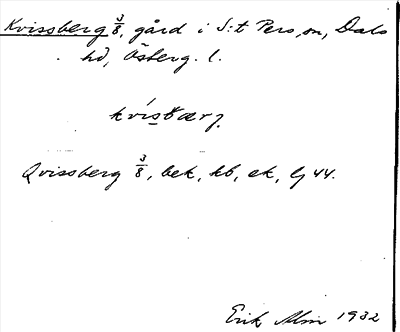 Kvissberg 3/8, gård i S:t Pers sn, Dals
hd, Österg. l.
kvisbærj.
Qvissberg 3/8, bek, kb, ek, lj 44.
Erik Alm 1932